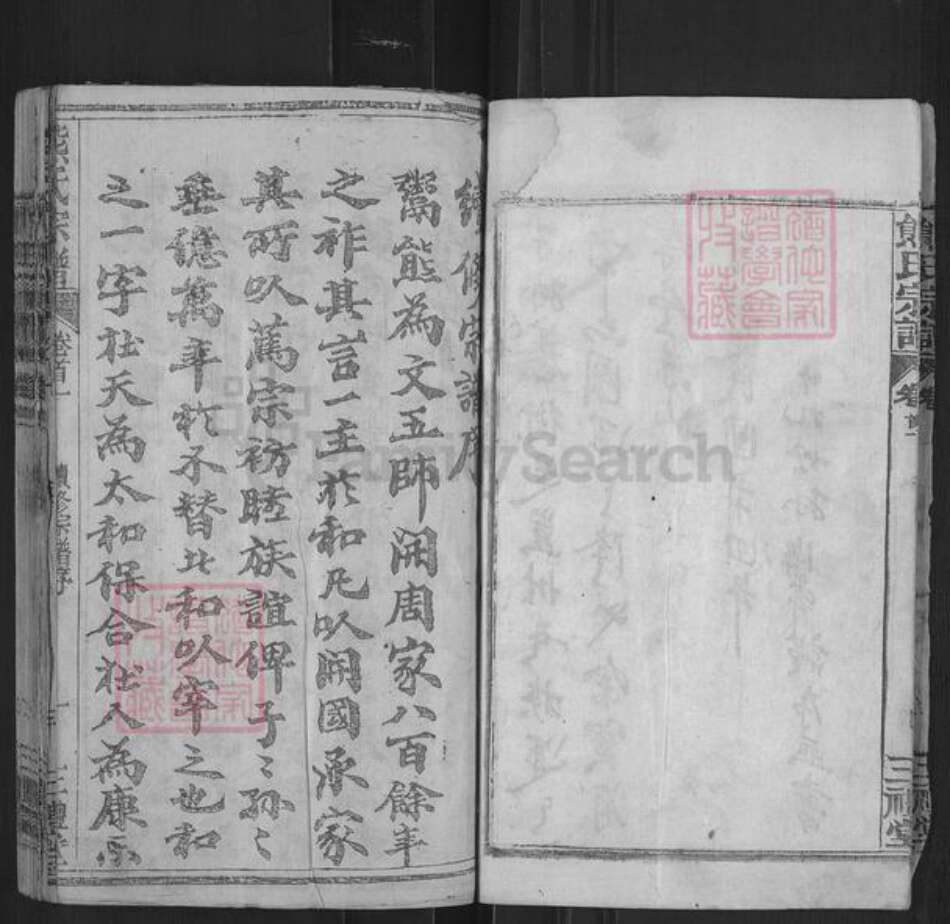 熊氏宗譜
卷首
三禮堂
續修宗譜序
鬻熊為文五師開周家八百餘年
之祚其言一主於和凡以開國承家
其所以篤宗訪睦族誼俾子〻孫〻
垂億萬年於不替此和以宰之也和
之一字在天為太和保合在人為康
熊氏宗譜
卷首
續修宗譜序
三禮堂
FamilySearch